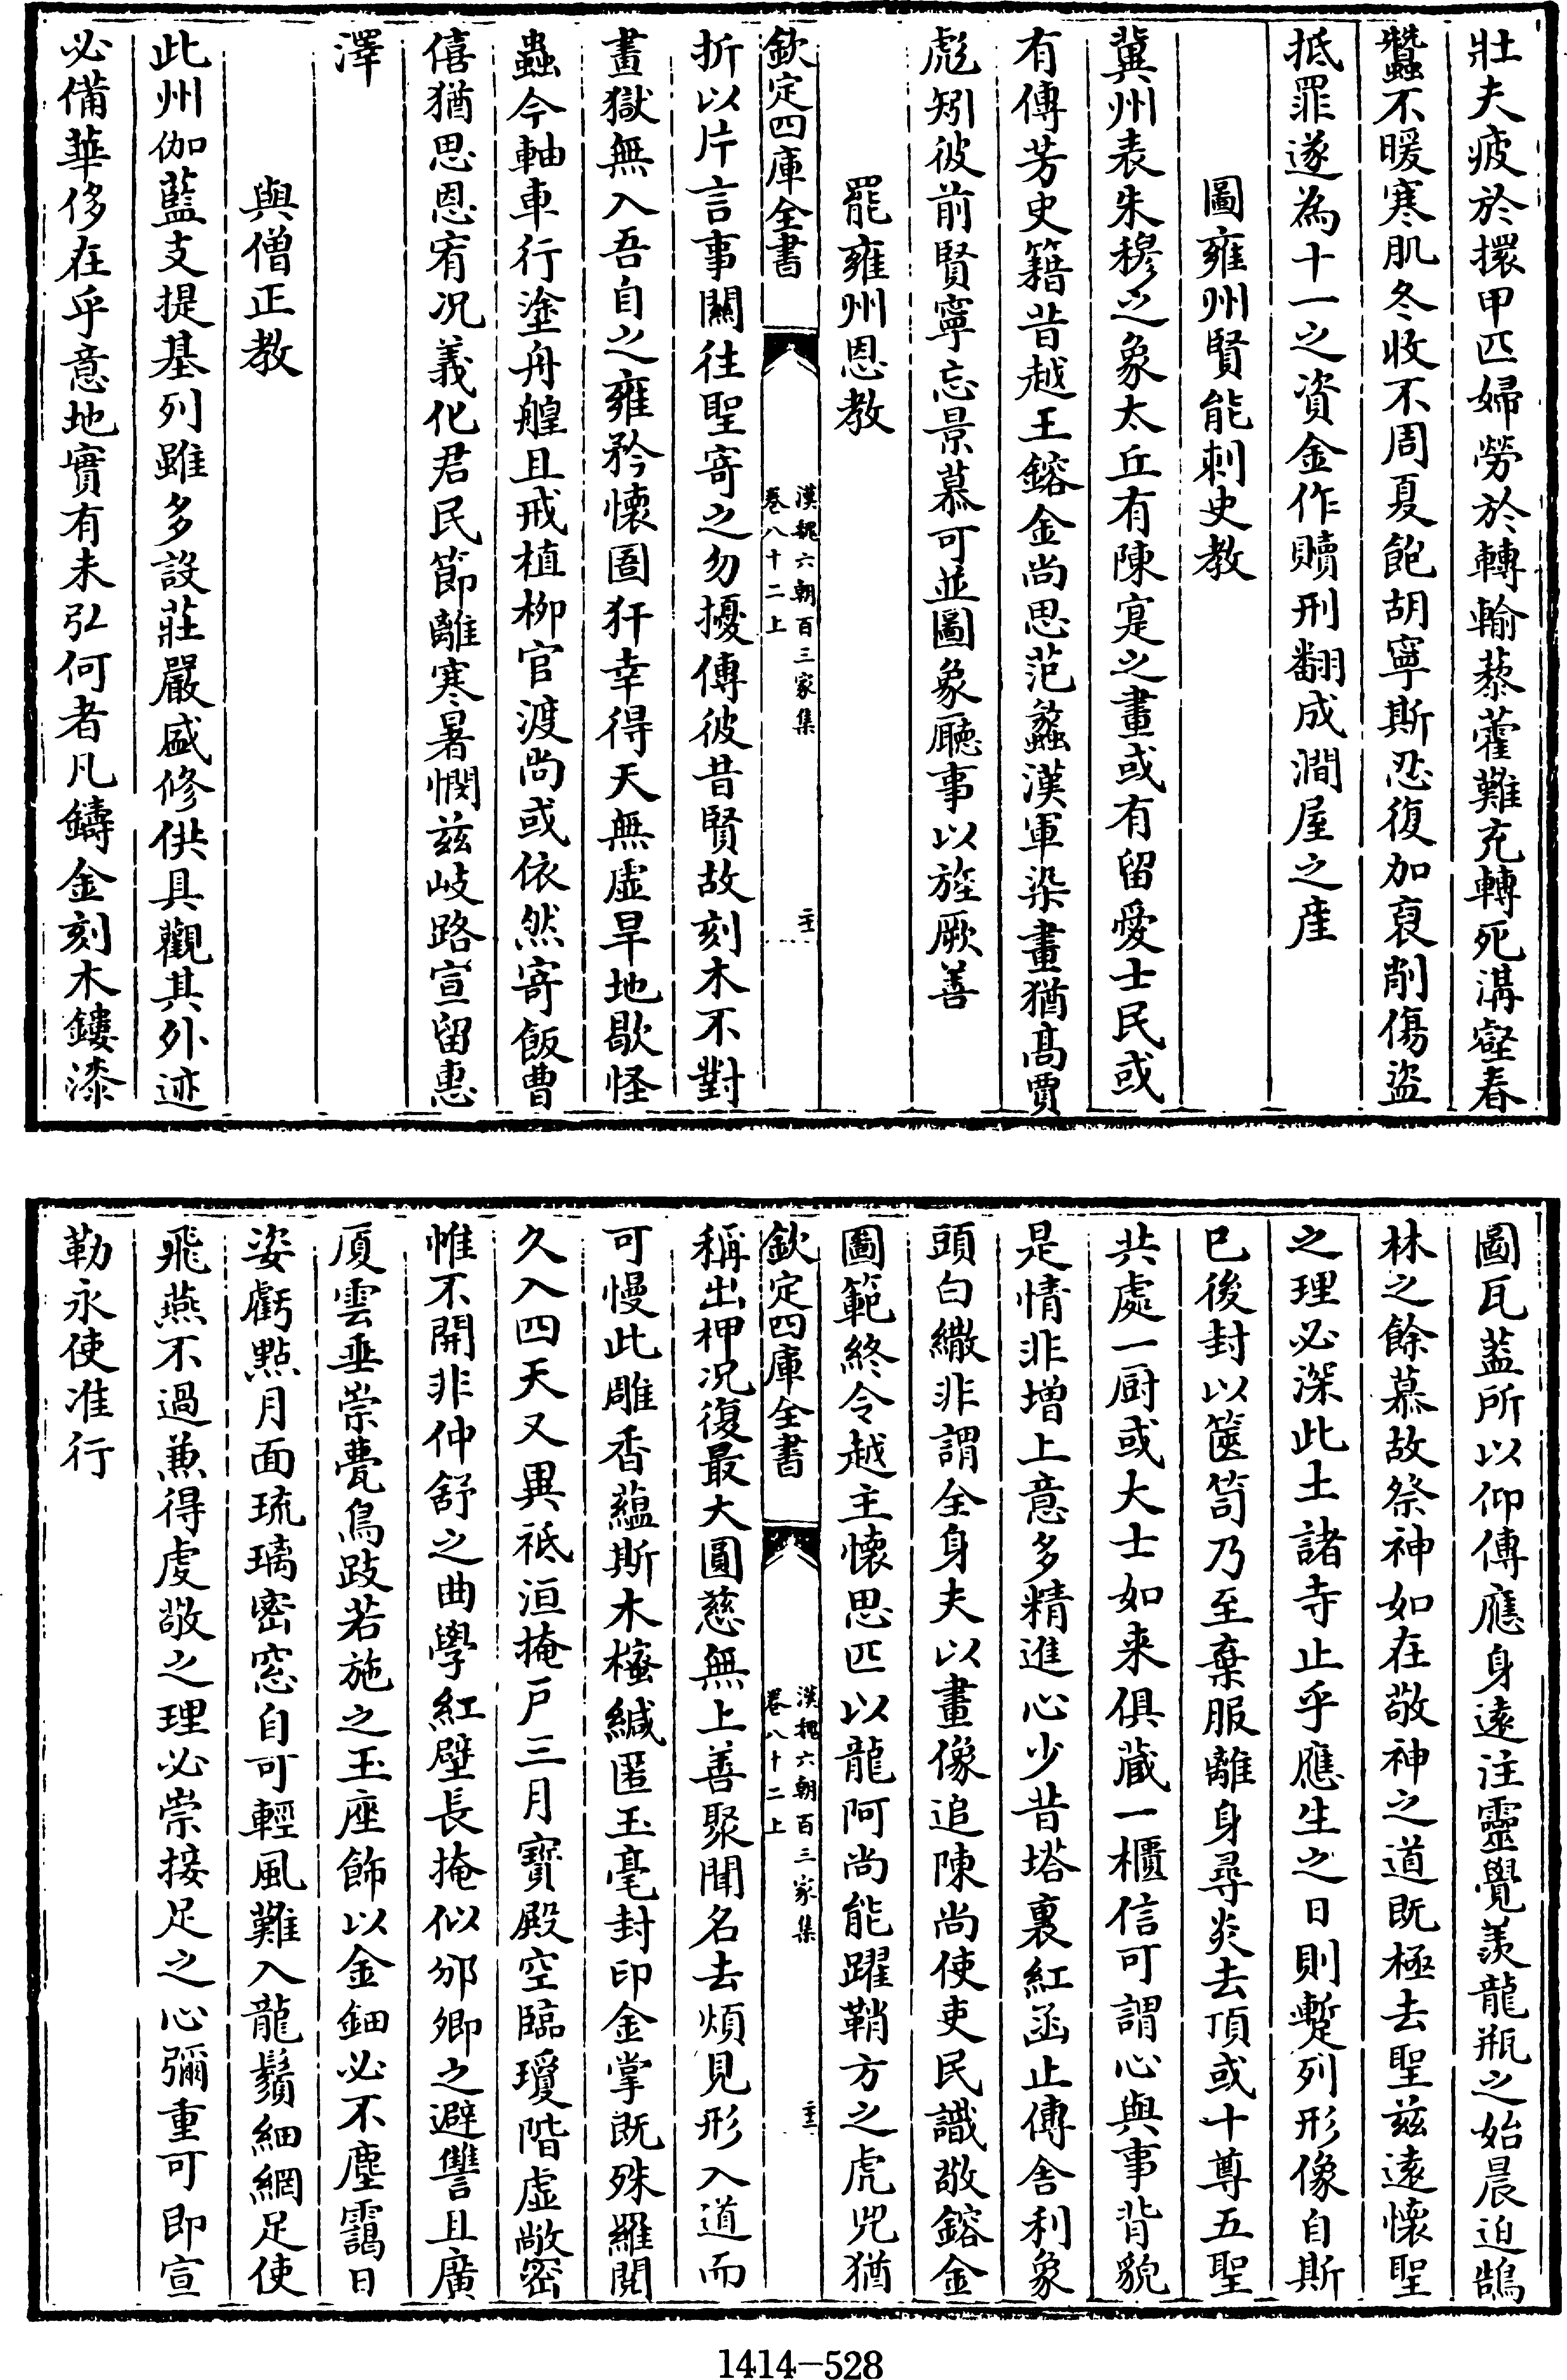 壯夫疲於擐甲匹婦勞於轉輸藜藿難充轉死溝壑春
蠶不暖寒肌冬收不周夏飽胡寧斯忍復加裒削傷盜
抵罪遂為十一之資金作贖刑翻成澗屋之産
圖雍州賢能刺史教
冀州表朱穆之象太丘有陳寔之畫或有留愛士民或
有傳芳史籍昔越王鎔金尚思范蠡漢軍染畫猶髙賈
彪矧彼前賢寧忘景慕可並圖象㕔事以旌厥善
罷雍州恩教
欽定四庫全書
漢魏六朝百三家集
卷八十二上
折以片言事關往聖寄之勿擾傳彼昔賢故刻木不對
畫獄無入吾自之雍矜懷圄犴幸得天無虛旱地歇怪
蟲今軸車行塗舟艎且戒植柳官渡尚或依然寄飯曹
僖猶思恩宥况義化君民節離寒暑憫兹岐路宣留惠
澤
與僧正教
此州伽藍支提基列雖多設莊嚴盛修供具觀其外迹
必備華侈在乎意地實有未弘何者凡鑄金刻木鏤漆
圖瓦蓋所以仰傳應身遠注靈覺羨龍瓶之始晨迫鵠
林之餘慕故祭神如在敬神之道既極去聖兹遠懷聖
之理必深此土諸寺止乎應生之日則蹔列形像自斯
已後封以篋笥乃至棄服離身尋炎去頂或十尊五聖
共處一厨或大士如来俱藏一櫃信可謂心與事背貌
是情非増上意多精進心少昔塔裏紅函止傳舍利象
頭白繖非謂全身夫以畫像追陳尚使吏民識敬鎔金
圖範終令越主懷思匹以龍阿尚能躍鞘方之虎兕猶
欽定四庫全書
漢魏六朝百三家集
卷八十二上
稱出柙况復最大圓慈無上善聚聞名去煩見形入道而
可慢此雕香蘊斯木櫁緘匿玉毫封印金掌既殊羅閱
久入四天又異祇洹掩戸三月寶殿空臨瓊階虛敞密
帷不開非仲舒之曲學紅壁長掩似邠卿之避讐且廣
厦雲垂崇甍鳥跂若施之玉座飾以金鈿必不塵靄日
姿虧點月面琉璃密窓自可輕風難入龍鬚細網足使
飛燕不過兼得虔敬之理必崇接足之心彌重可即宣
勒永使准行
1414-528